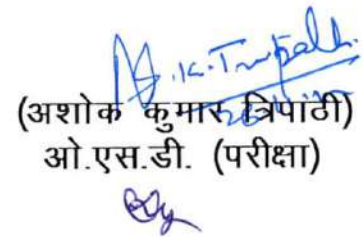 A.K. Tripathi
(अशोक कुमार त्रिपाठी)
ओ.एस.डी. (परीक्षा)